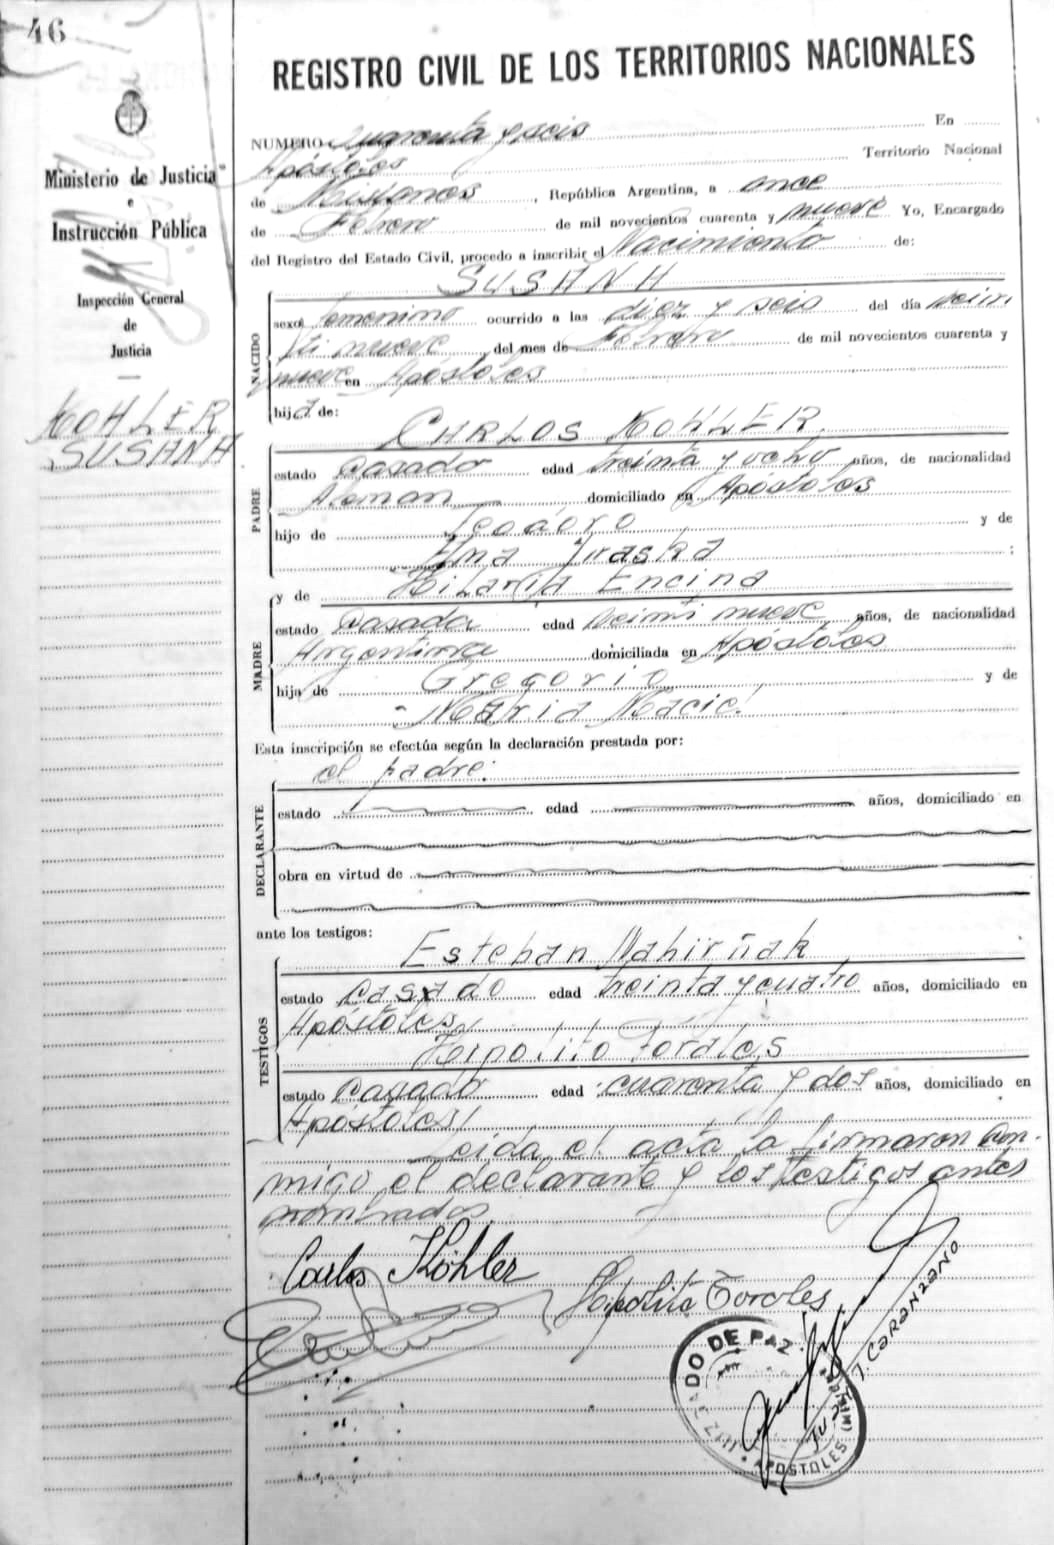 46
REGISTRO CIVIL DE LOS TERRITORIOS NACIONALES
Ministerio de Justicia
e
Instrucción Pública
Inspección General
de
Justicia
KOHLER
SUSANA
NUMERO Cuarenta y seis En
Apóstoles Territorio Nacional
de Misiones, República Argentina, a once
de Febrero de mil novecientos cuarenta y nueve Yo, Encargado
del Registro del Estado Civil, procedo a inscribir el Nacimiento de:
SUSANA
NACIDO
sexo femenino ocurrido a las diez y seis del día vein
ti nueve del mes de de mil novecientos cuarenta y
nueve en Apóstoles
hija de:
CARLOS KOHLER
PADRE
estado Casado edad treinta y ocho años, de nacionalidad
Aleman domiciliado en Apóstoles
hijo de Teodoro y de
Ana ;
y de Hilaria Encina
MADRE
estado Casada edad veinti nueve años, de nacionalidad
Argentina domiciliada en Apóstoles
hija de Gregorio y de
Maria Maciel
Esta inscripción se efectúa según la declaración prestada por:
el padre:
DECLARANTE
estado edad años, domiciliado en
obra en virtud de
ante los testigos:
Esteban
TESTIGOS
estado Casado edad treinta y cuatro años, domiciliado en
Apóstoles
Hipolito
estado Casado edad cuarenta y dos años, domiciliado en
Apóstoles
Leida el acta la firmaron con-
migo el declarante y los testigos antes
nombrados
Carlos Köhler
Hipolito
J. CARANZANO
JUZGADO DE PAZ
APOSTOLES (MISIONES)